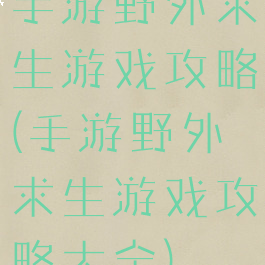 手游野外求
生游戏攻略
(手游野外
求生游戏攻
略大全)